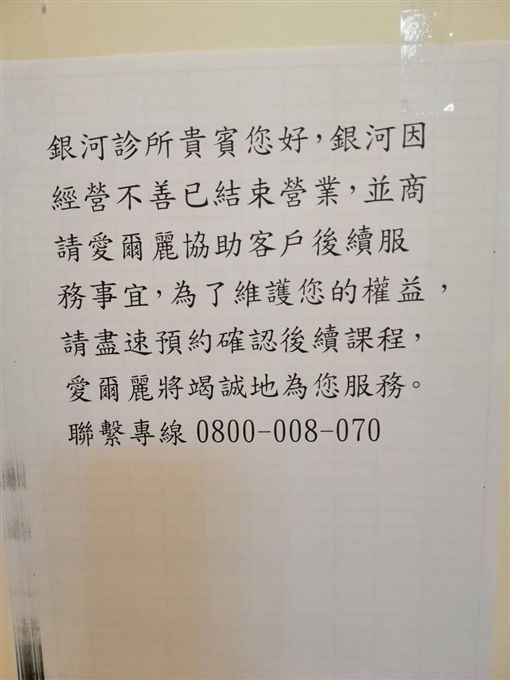 銀河診所貴賓您好，銀河因
經營不善已結束營業，並商
請愛爾麗協助客戶後續服
務事宜，為了維護您的權益，
請盡速預約確認後續課程，
愛爾麗將竭誠地為您服務。
聯繫專線 0800-008-070